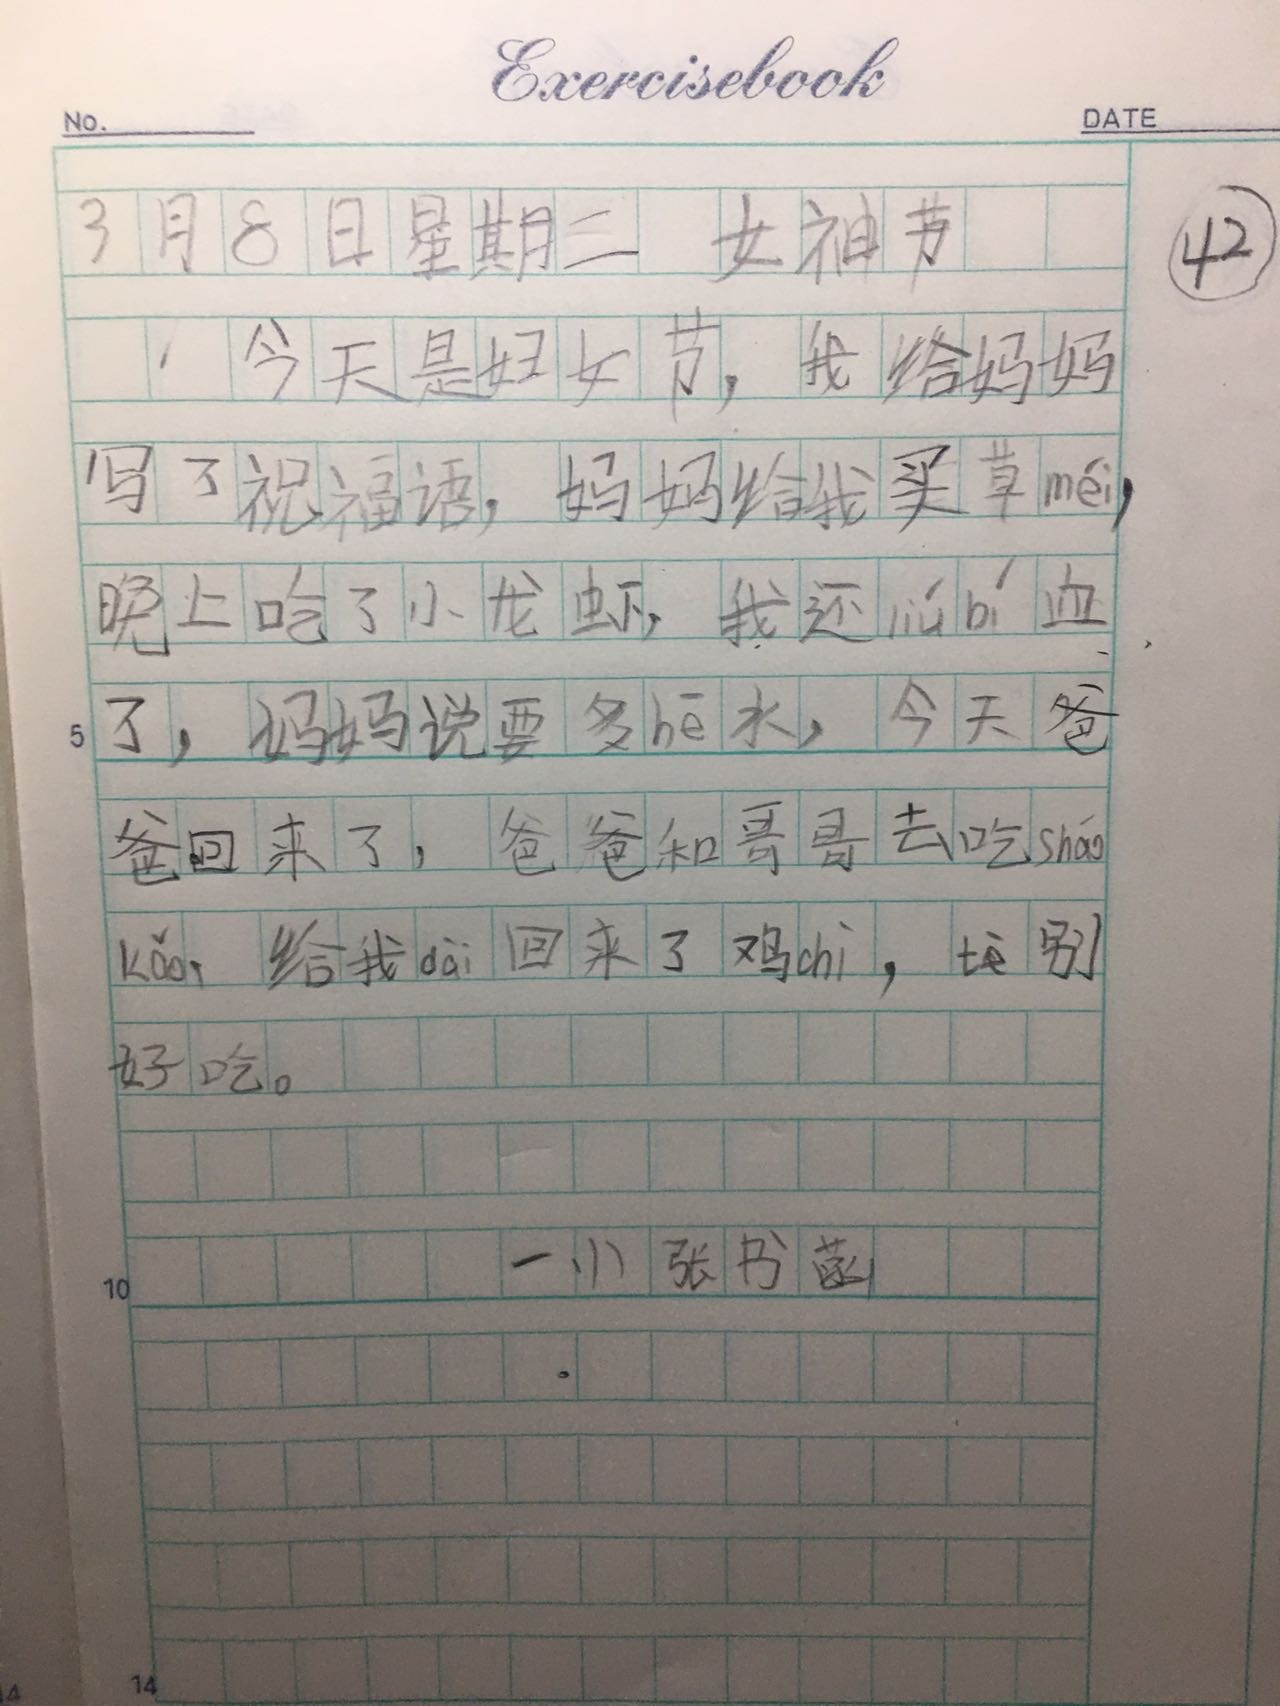 Exercisebook
No.
DATE
3月8日星期二 女神节
42
今天是妇女节，我给妈妈
写了祝福语，妈妈给我买草méi，
晚上吃了小龙虾，我还liúbí血
5
了，妈妈说要多hē水，今天爸
爸回来了，爸爸和哥哥去吃shāo
kǎo，给我dài回来了鸡chì，tè别
好吃。
一小 张书菡
10
14